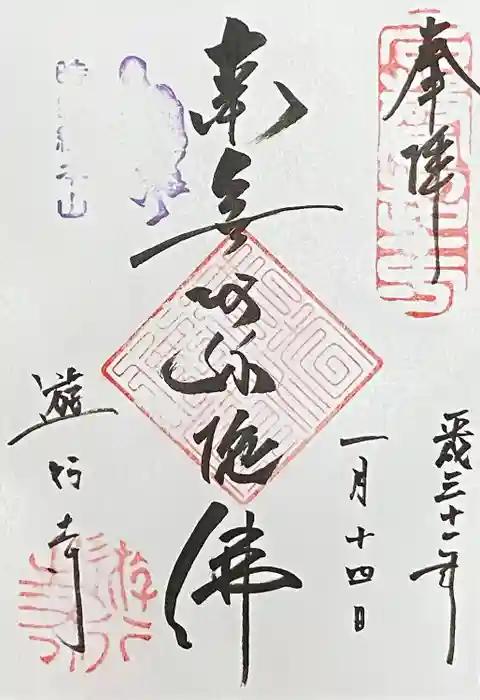 奉拝
平成三十一年
一月十四日
南無阿弥陀佛
遊行寺